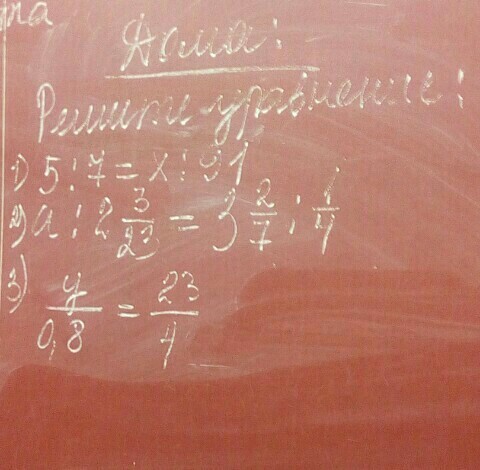 Дома:
Решите уравнение:
1) 5:7=x:91
2) a:2 3/23 = 3 2/7 : 1/4
3) y/0,8 = 23/4